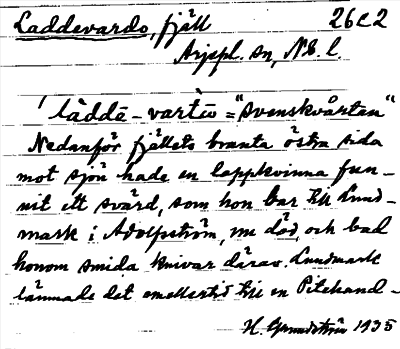 Laddevardo, fjäll 26c2
Arjepl. sn, N.b. l.
'làddē-vartū = "Svenskvårtan"
Nedanför fjällets branta östra sida
mot sjön hade en lappkvinna fun-
nit ett svärd, som hon bar till Lund-
mark i Adolfström, nu död, och bad
honom smida knivar därav. Lundmark
lämnade det emellertid till en Pitehand-
H. Grundström 1935